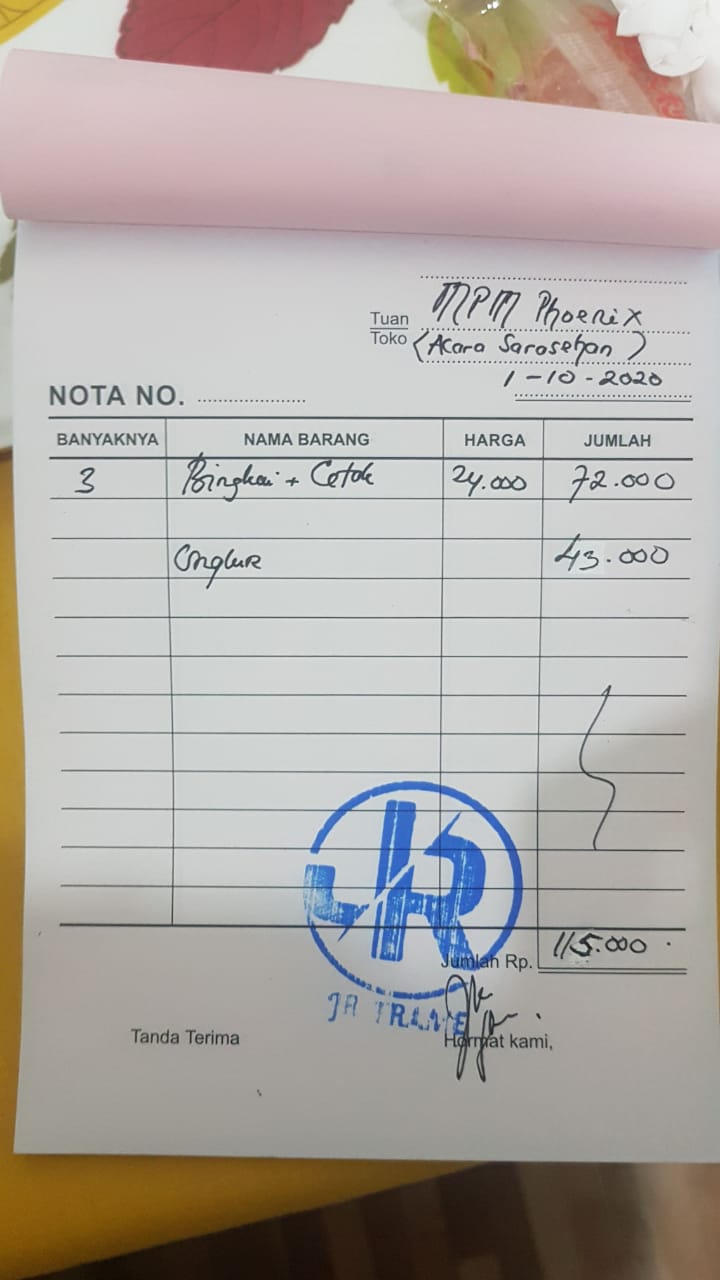 MPM Phoenix
Tuan
Toko (Acara Sarosehan)
1-10-2020
NOTA NO. ....................
BANYAKNYA NAMA BARANG HARGA JUMLAH
3 Bingkai + Cetak 24.000 72.000
Ongkir 43.000
Jumlah Rp. 115.000
JR
JR FRAME
Tanda Terima Hormat kami,